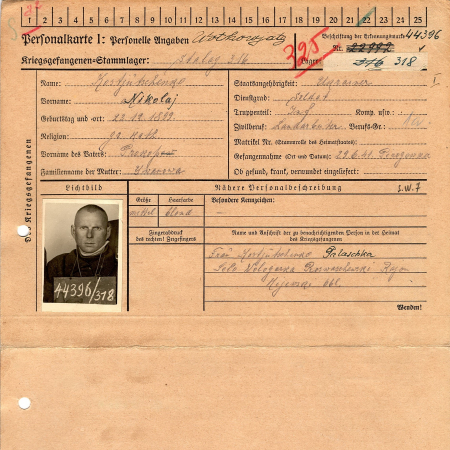 1 2 3 4 5 6 7 8 9 10 11 12 13 14 15 16 17 18 19 20 21 22 23 24 25
Personalkarte I: Personelle Angaben
Beschriftung der Erkennungsmarke
Nr. 22992 44396
Kriegsgefangenen-Stammlager: Stalag 316
395
Lager: 316 318
Des Kriegsgefangenen
Name: Kostjutschenko
Staatsangehörigkeit: Ukrainer
I
Vorname: Nikolaj
Dienstgrad: Soldat
Truppenteil: Komp. usw.:
Geburtstag und -ort: 22.12.1899
Zivilberuf: Landarbeiter Berufs-Gr.:
Religion: gr. kath.
Matrikel Nr. (Stammrolle des Heimatstaates):
Vorname des Vaters: Prokop
Gefangennahme (Ort und Datum):
Familienname der Mutter:
Ob gesund, krank, verwundet eingeliefert:
Lichtbild
Nähere Personalbeschreibung
Größe Haarfarbe Besondere Kennzeichen:
mittel blond —
Fingerabdruck
des rechten! Zeigefingers
Name und Anschrift der zu benachrichtigenden Person in der Heimat
des Kriegsgefangenen
Frau Kostjutschenko Palaschka
44396/318
Wenden!